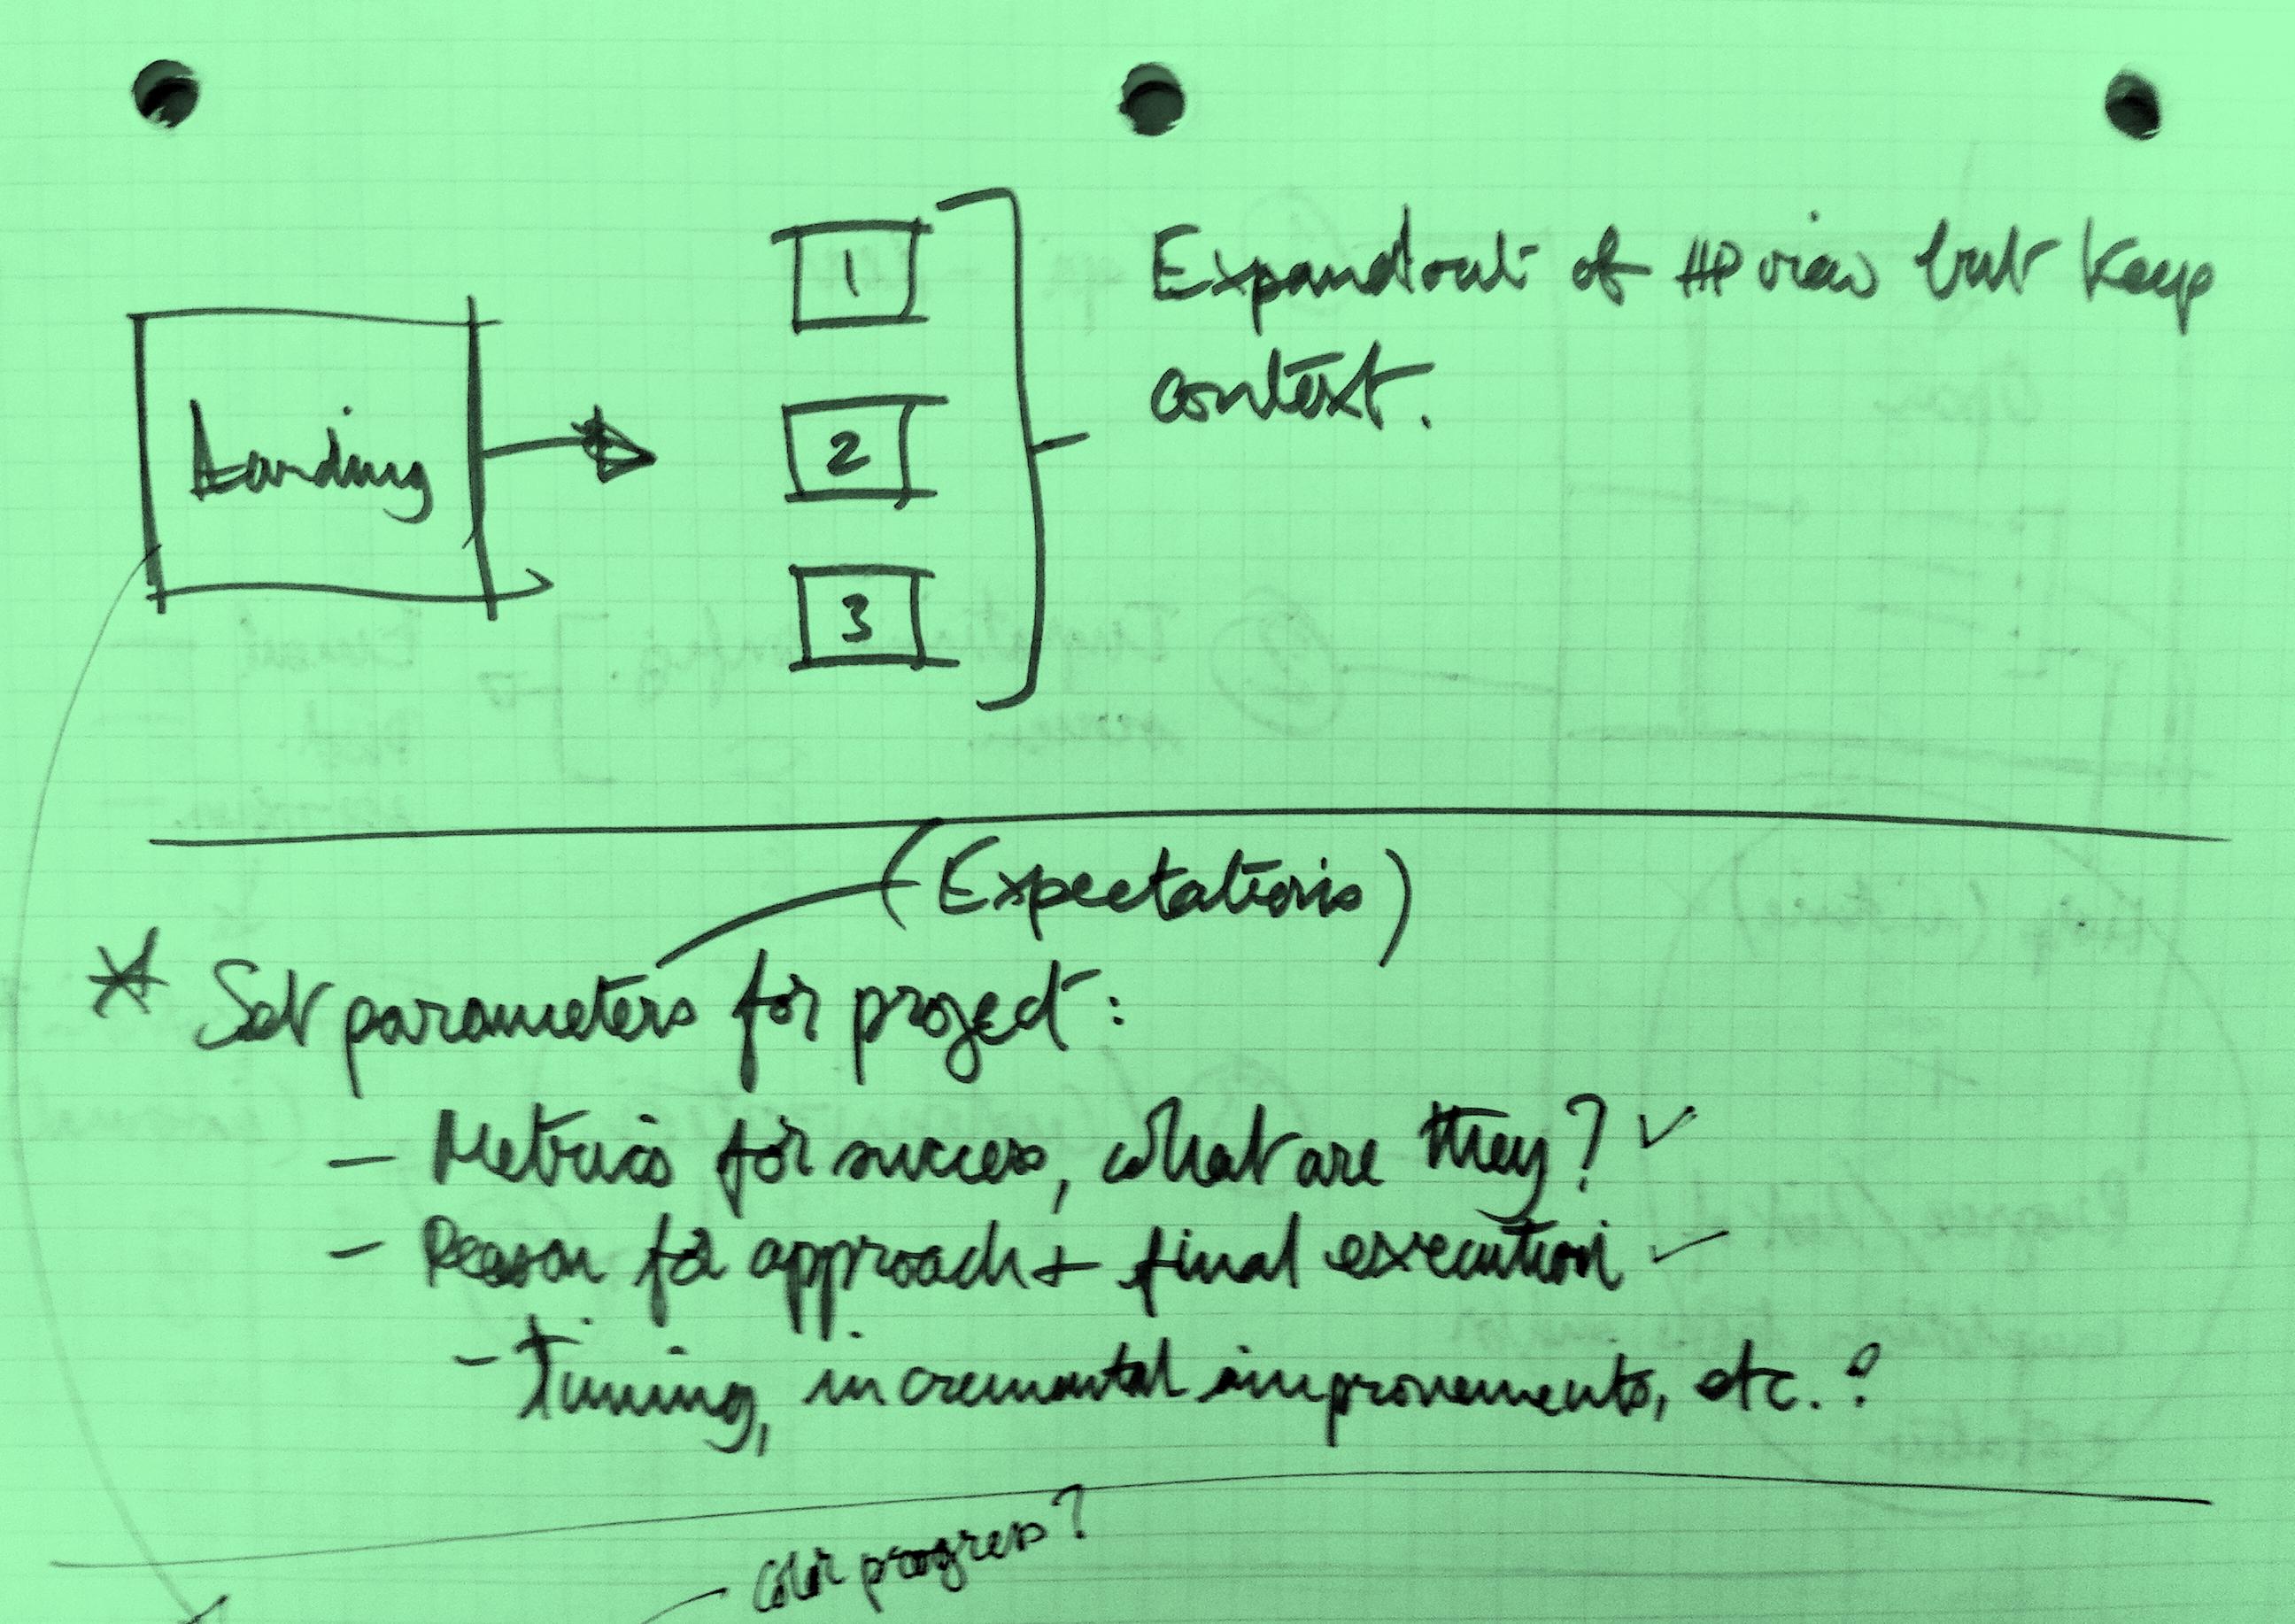 1
Expand out of HP view but keep
context.
Landing
2
3
(Expectations)
* Set parameters for project:
– Metrics for success, what are they? ✓
– Reason for approach + final execution ✓
- Timing, incremental improvements, etc.?
Color progress?